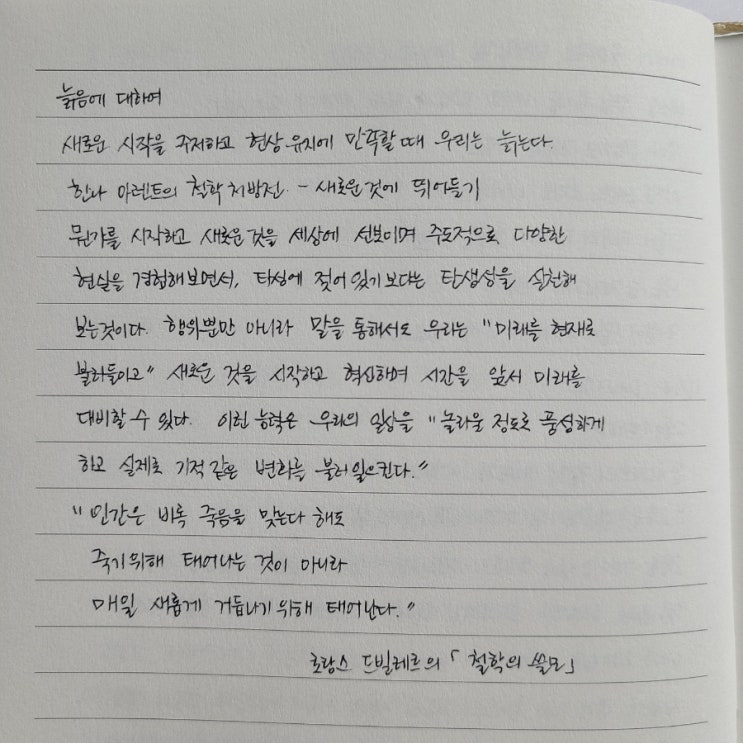 늙음에 대하여
새로운 시작을 주저하고 현상 유지에 만족할 때 우리는 늙는다.
한나 아렌트의 철학 처방전 - 새로운 것에 뛰어들기
뭔가를 시작하고 새로운 것을 세상에 선보이며 주도적으로 다양한
현실을 경험해보면서, 타성에 젖어 있기 보다는 탄생성을 실천해
보는 것이다. 행위뿐만 아니라 말을 통해서도 우리는 "미래를 현재로
불러들이고" 새로운 것을 시작하고 혁신하며 시간을 앞서 미래를
대비할 수 있다. 이런 능력은 우리의 일상을 "놀라울 정도로 풍성하게
하고 실제로 기적 같은 변화를 불러 일으킨다."
"인간은 비록 죽음을 맞는다 해도
죽기 위해 태어나는 것이 아니라
매일 새롭게 거듭나기 위해 태어난다."
로랑스 드빌레르의 「철학의 쓸모」